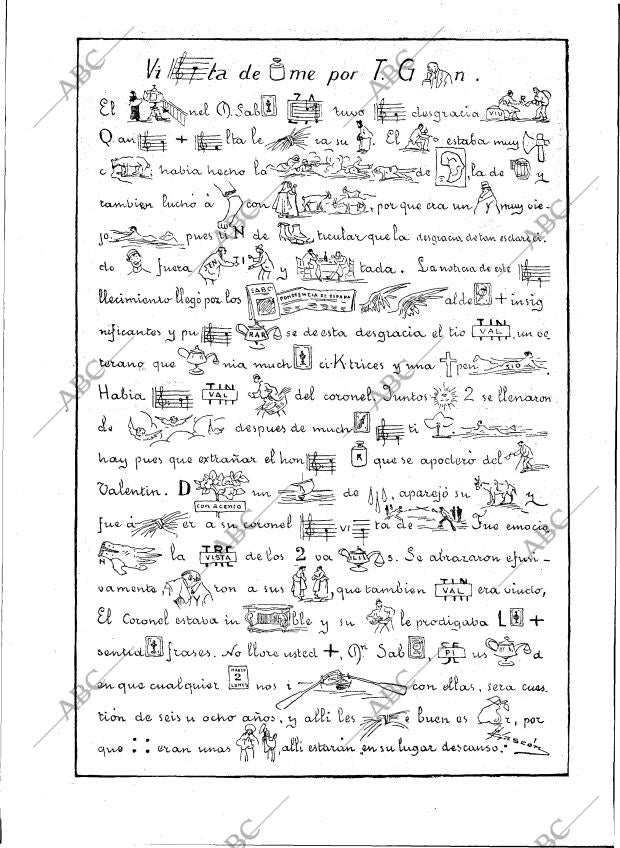 Vi ta de me por T. G n.
El nel D. Sab tuvo desgracia VIU
Q. an + lta le ra su . El estaba muy
c ; habia hecho la de la de y
tambien luchó á con , por que era un muy vie-
jo pues ti N de ticular que la desgracia de tan esclareci-
do fuera STN TI y tada. La noticia de este
llecimiento llegó por los ABC PONDENCIA DE ESPAÑA al de + insig
nificantes y pu RAR se de esta desgracia el tio TIN VAL, un ve
terano que nia much ci-K-trices y una pen SIO .
Habia TIN VAL del coronel. Juntos 2 se llenaron
de despues de much ti .
hay pues que extrañar el hon R que se apoderó del
Valentin. D CON ACENTO un de , aparejó su y
fue á er a su coronel vi ta de . Fue emocio
N la TRE VISTA de los 2 va LI s. Se abrazaron efusi-
vamente ron a sus , que tambien TIN VAL era viudo,
El Coronel estaba in ble y su le prodigaba L +
sentid frases. No llore usted +, D. Sab , CE PI us d
en que cualquier MARZO 2 LUNES nos i con ellas, sera cues
tión de seis u ocho años, y allí les e buen es r, por
que : : eran unas , allí estarán en su lugar descanso.
Xascón